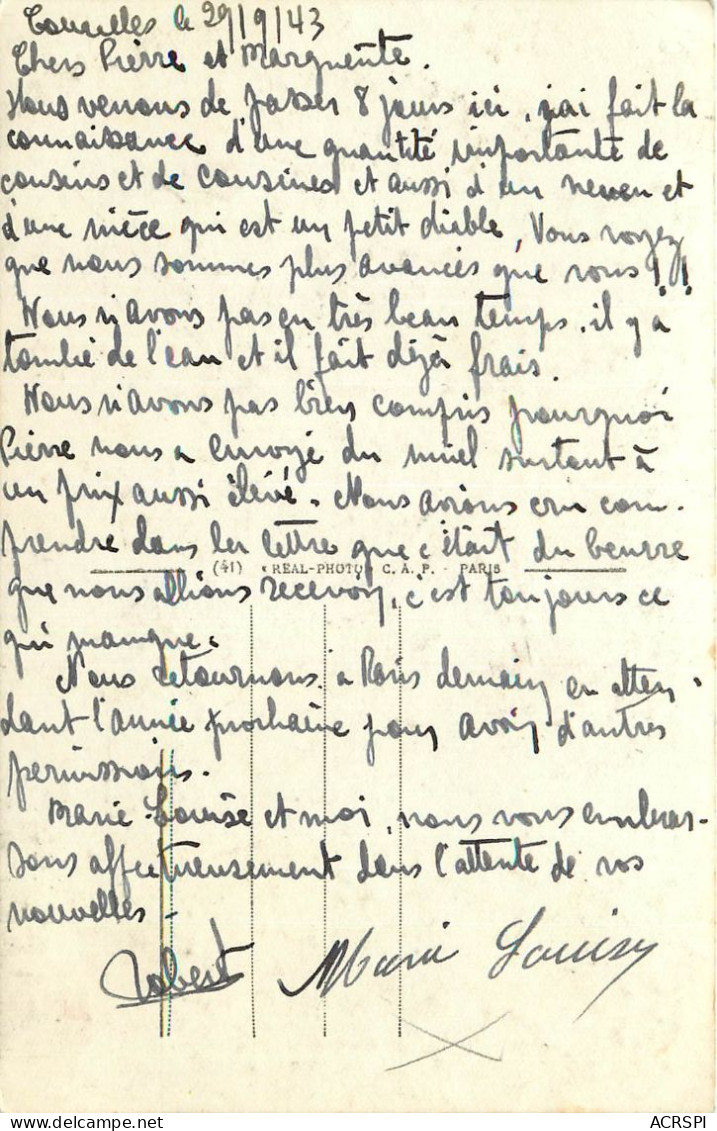 le 29/9/43
Chers Pierre et Marguerite.
Nous venons de passer 8 jours ici, j'ai fait la
connaissance d'une quantité importante de
cousins et de cousines et aussi d'un neveu et
d'une nièce qui est un petit diable, Vous voyez
que nous sommes plus avancés que vous!!
Nous n'avons pas eu très beau temps, il y a
tombé de l'eau et il fait déjà frais.
Nous n'avons pas bien compris pourquoi
Pierre nous a envoyé du miel surtout à
un prix aussi élévé. Nous avions cru com-
prendre dans les lettre que c'était du beurre
(41) REAL-PHOTO C. A. P. - PARIS
que nous allions recevoir, c'est toujours ce
qui manque.
Nous retournons à Paris demain en atten-
dant l'année prochaine pour avoir d'autres
permissions.
Marie-Louise et moi, nous vous embras-
sons affectueusement dans l'attente de vos
nouvelles -
Robert Marie Louise
ACRSPI